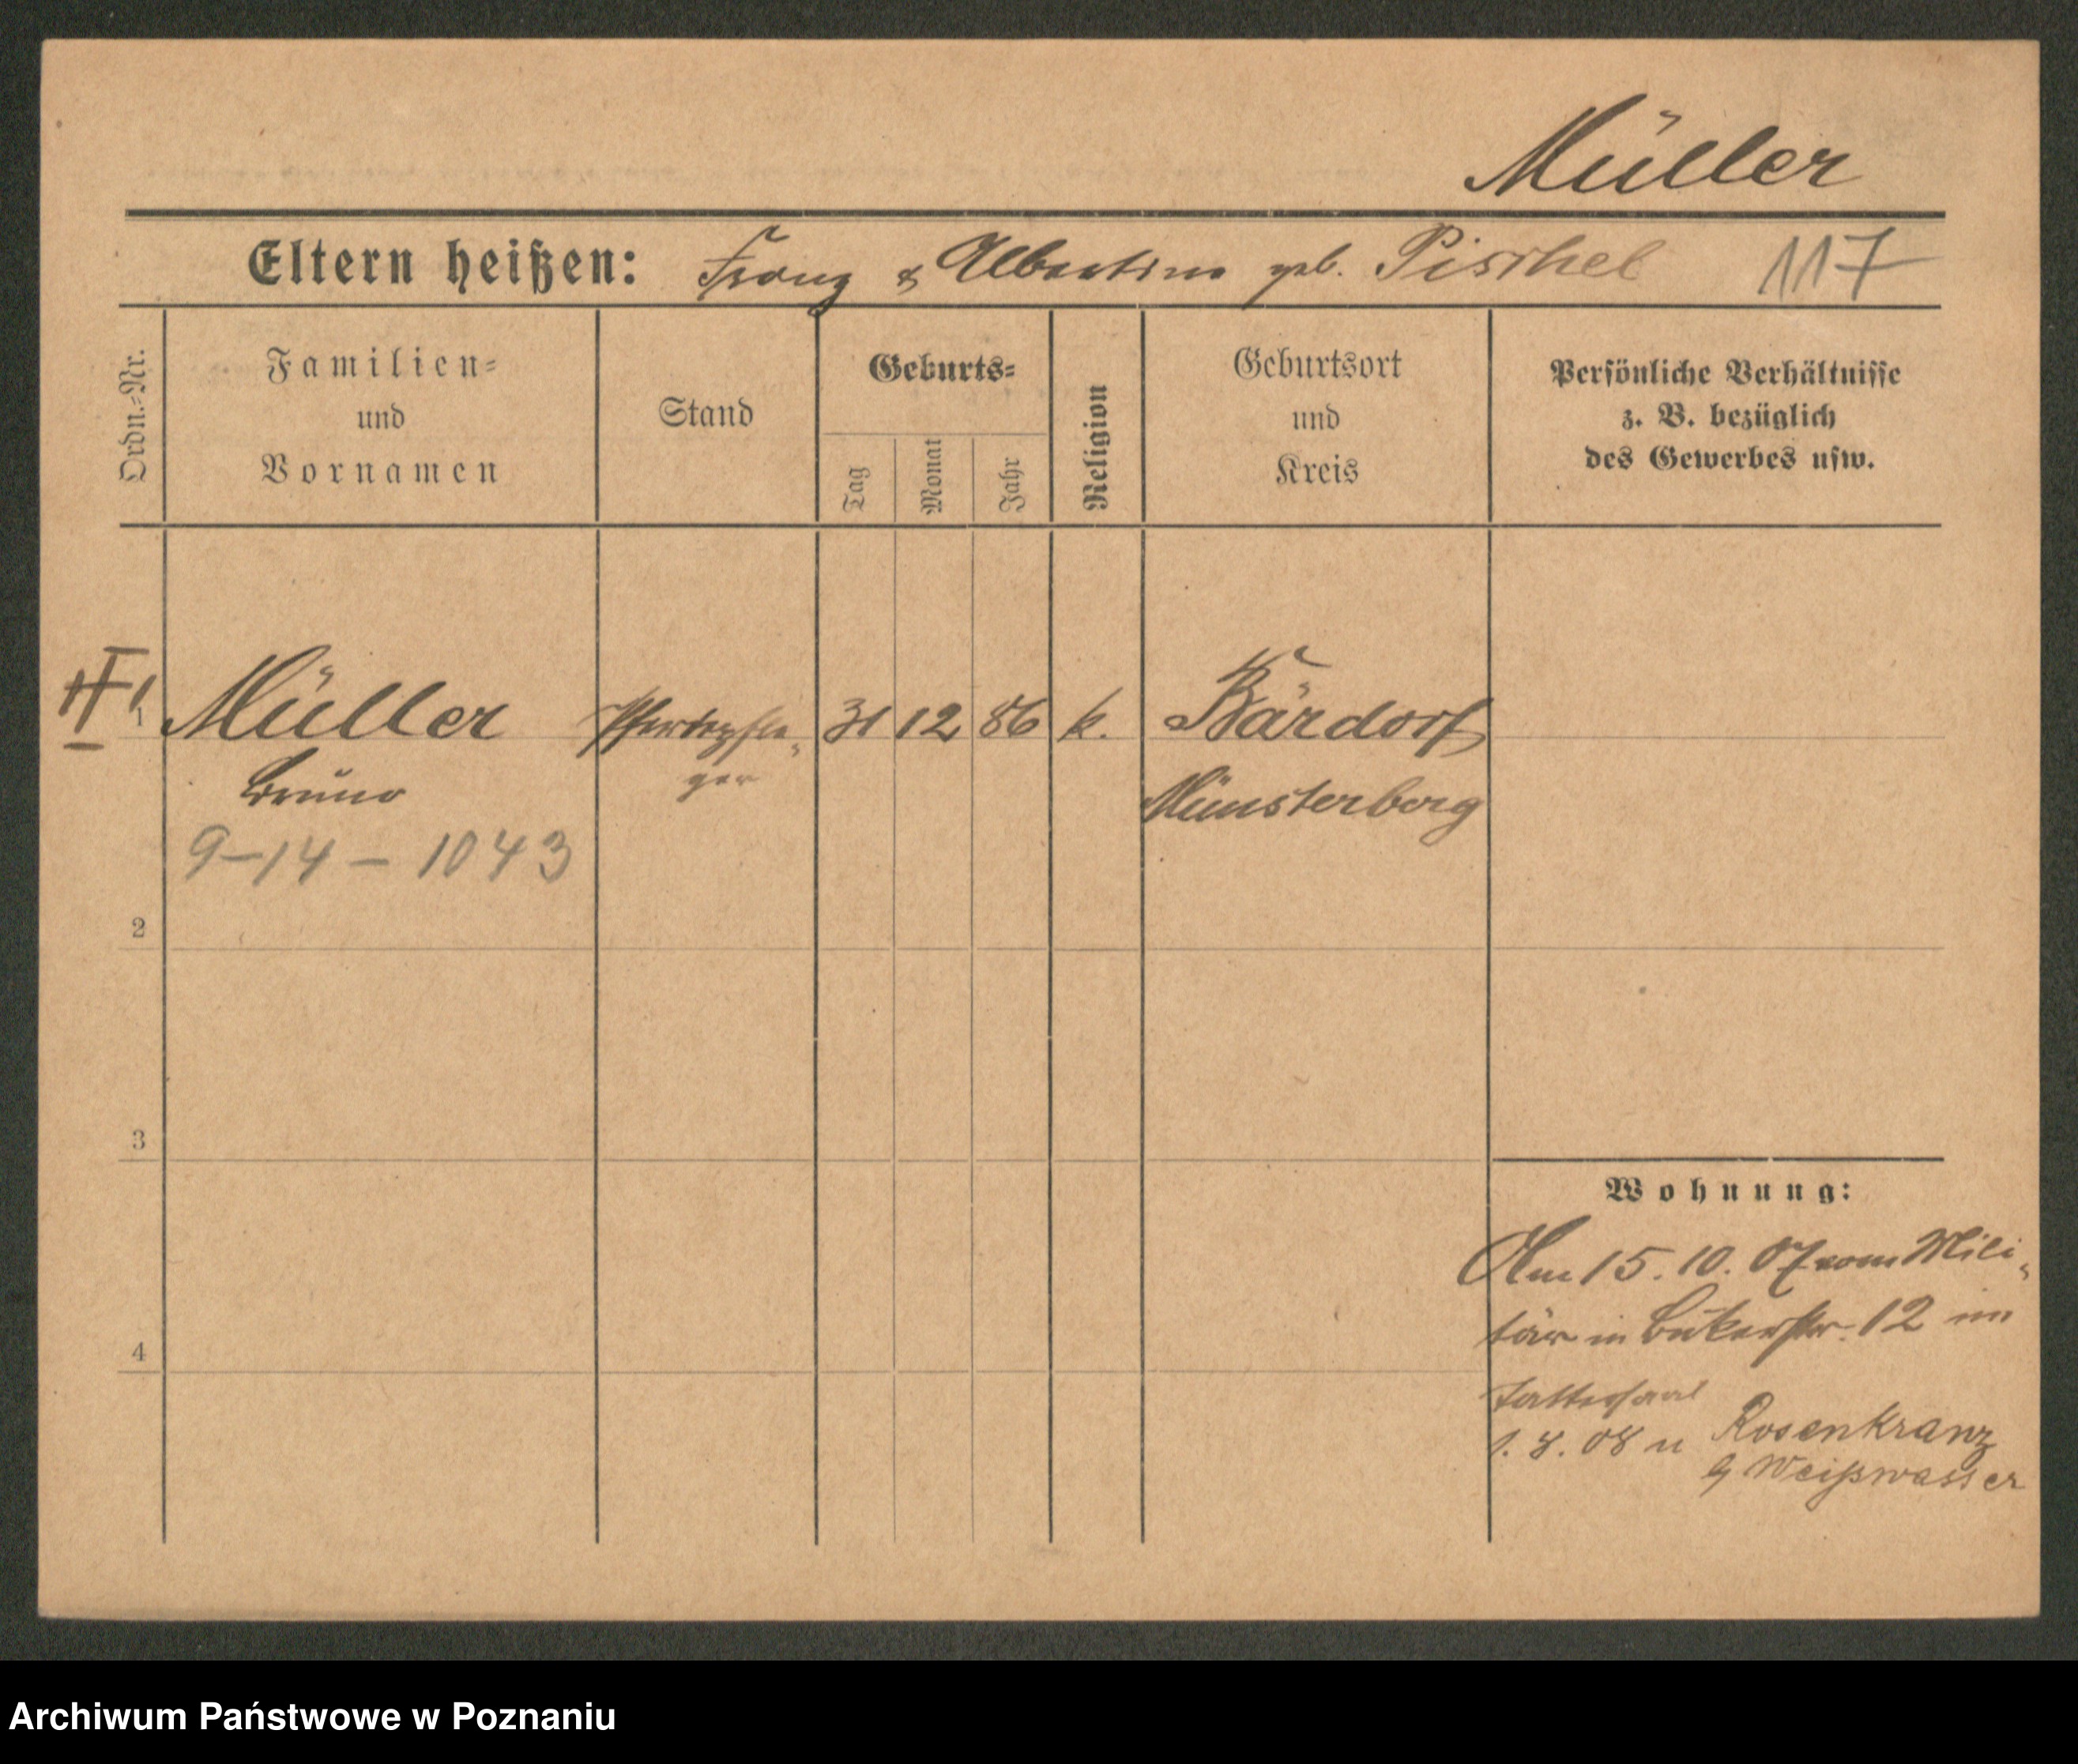 Müller
Eltern heißen: Franz & Albertine geb. Pischel 117
Ordn.-Nr.
Familien=
und
Vornamen
Stand
Geburts=
Tag
Monat
Jahr
Religion
Geburtsort
und
Kreis
Persönliche Verhältnisse
z. B. bezüglich
des Gewerbes usw.
1 Müller Pferdepfle= 31 12 86 k. Bärdorf
Bruno ger Münsterberg
9-14-1043
2
3
4
Wohnung:
Am 15. 10. 07 vom Mili=
tär in Bukerstr. 12 im
Tattersaal
1. 8. 08 n Rosenkranz
b/ Weißwasser
Archiwum Państwowe w Poznaniu